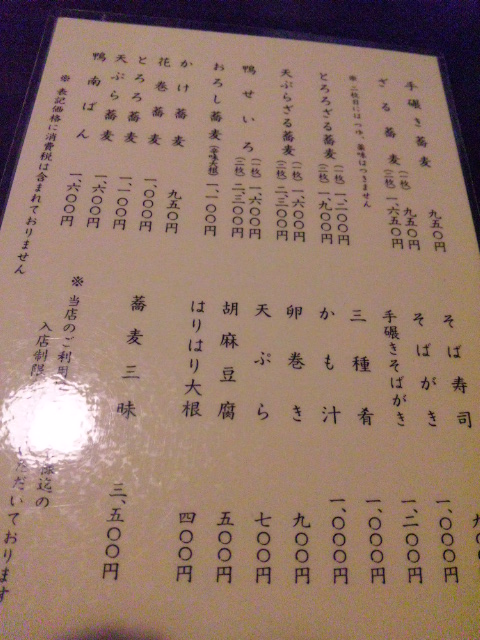 手碾き蕎麦 九五〇円
ざる蕎麦 (一枚) 九五〇円
(二枚) 一、六五〇円
※ 二枚目にはつゆ、薬味はつきません
とろろざる蕎麦 (一枚) 一、二〇〇円
(二枚) 一、九〇〇円
天ぷらざる蕎麦 (一枚) 一、六〇〇円
(二枚) 二、三〇〇円
鴨せいろ (一枚) 一、六〇〇円
(二枚) 二、三〇〇円
おろし蕎麦(辛味大根) 一、一〇〇円
かけ蕎麦 九五〇円
花巻蕎麦 一、〇〇〇円
とろろ蕎麦 一、一〇〇円
天ぷら蕎麦 一、六〇〇円
鴨南ばん 一、六〇〇円
※ 表記価格に消費税は含まれておりません
そば寿司 九
そばがき 一、〇〇〇円
手碾きそばがき 一、二〇〇円
三種肴 一、〇〇〇円
かも汁 一、〇〇〇円
卵巻き 九〇〇円
天ぷら 七〇〇円
胡麻豆腐 五〇〇円
はりはり大根 四〇〇円
蕎麦三昧 三、五〇〇円
※ 当店のご利用
入店制限 迄の
いただいております